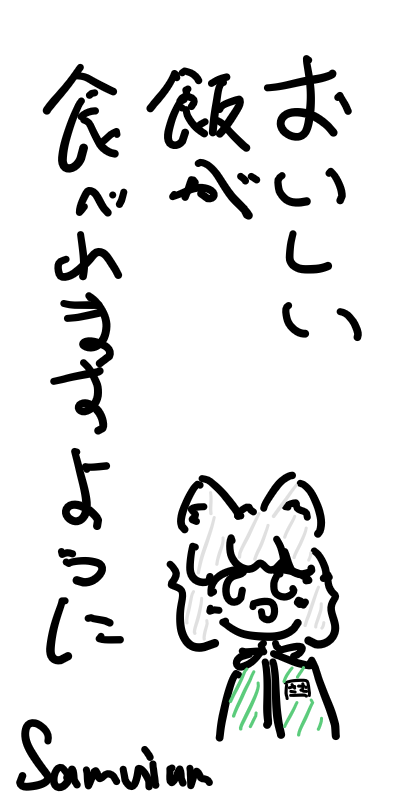 おいしい
飯が
食べれますように
Samurium